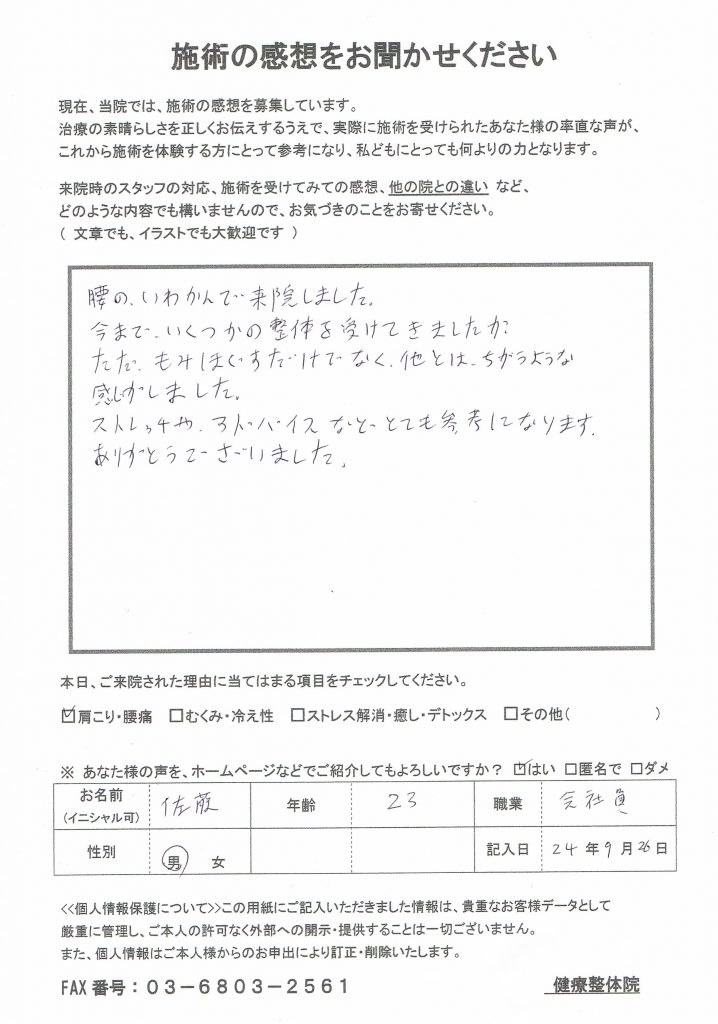 施術の感想をお聞かせください
現在、当院では、施術の感想を募集しています。
治療の素晴らしさを正しくお伝えするうえで、実際に施術を受けられたあなた様の率直な声が、
これから施術を体験する方にとって参考になり、私どもにとっても何よりの力となります。
来院時のスタッフの対応、施術を受けてみての感想、他の院との違い など、
どのような内容でも構いませんので、お気づきのことをお寄せください。
( 文章でも、イラストでも大歓迎です )
腰の、いわかんで来院しました。
今まで、いくつかの整体を受けてきましたが
ただ、もみほぐすだけでなく、他とは、ちがうような
感じがしました。
ストレッチや、アドバイスなど、とても参考になります。
ありがとうございました。
本日、ご来院された理由に当てはまる項目をチェックしてください。
☑肩こり・腰痛 □むくみ・冷え性 □ストレス解消・癒し・デトックス □その他( )
※ あなた様の声を、ホームページなどでご紹介してもよろしいですか? ☑はい □匿名で □ダメ
お名前 (イニシャル可) 佐藤 年齢 23 職業 会社員
性別 男 女 記入日 24 年 9 月 26 日
<<個人情報保護について>>この用紙にご記入いただきました情報は、貴重なお客様データとして
厳重に管理し、ご本人の許可なく外部への開示・提供することは一切ございません。
また、個人情報はご本人様からのお申出により訂正・削除いたします。
FAX 番号：03－6803－2561 健療整体院